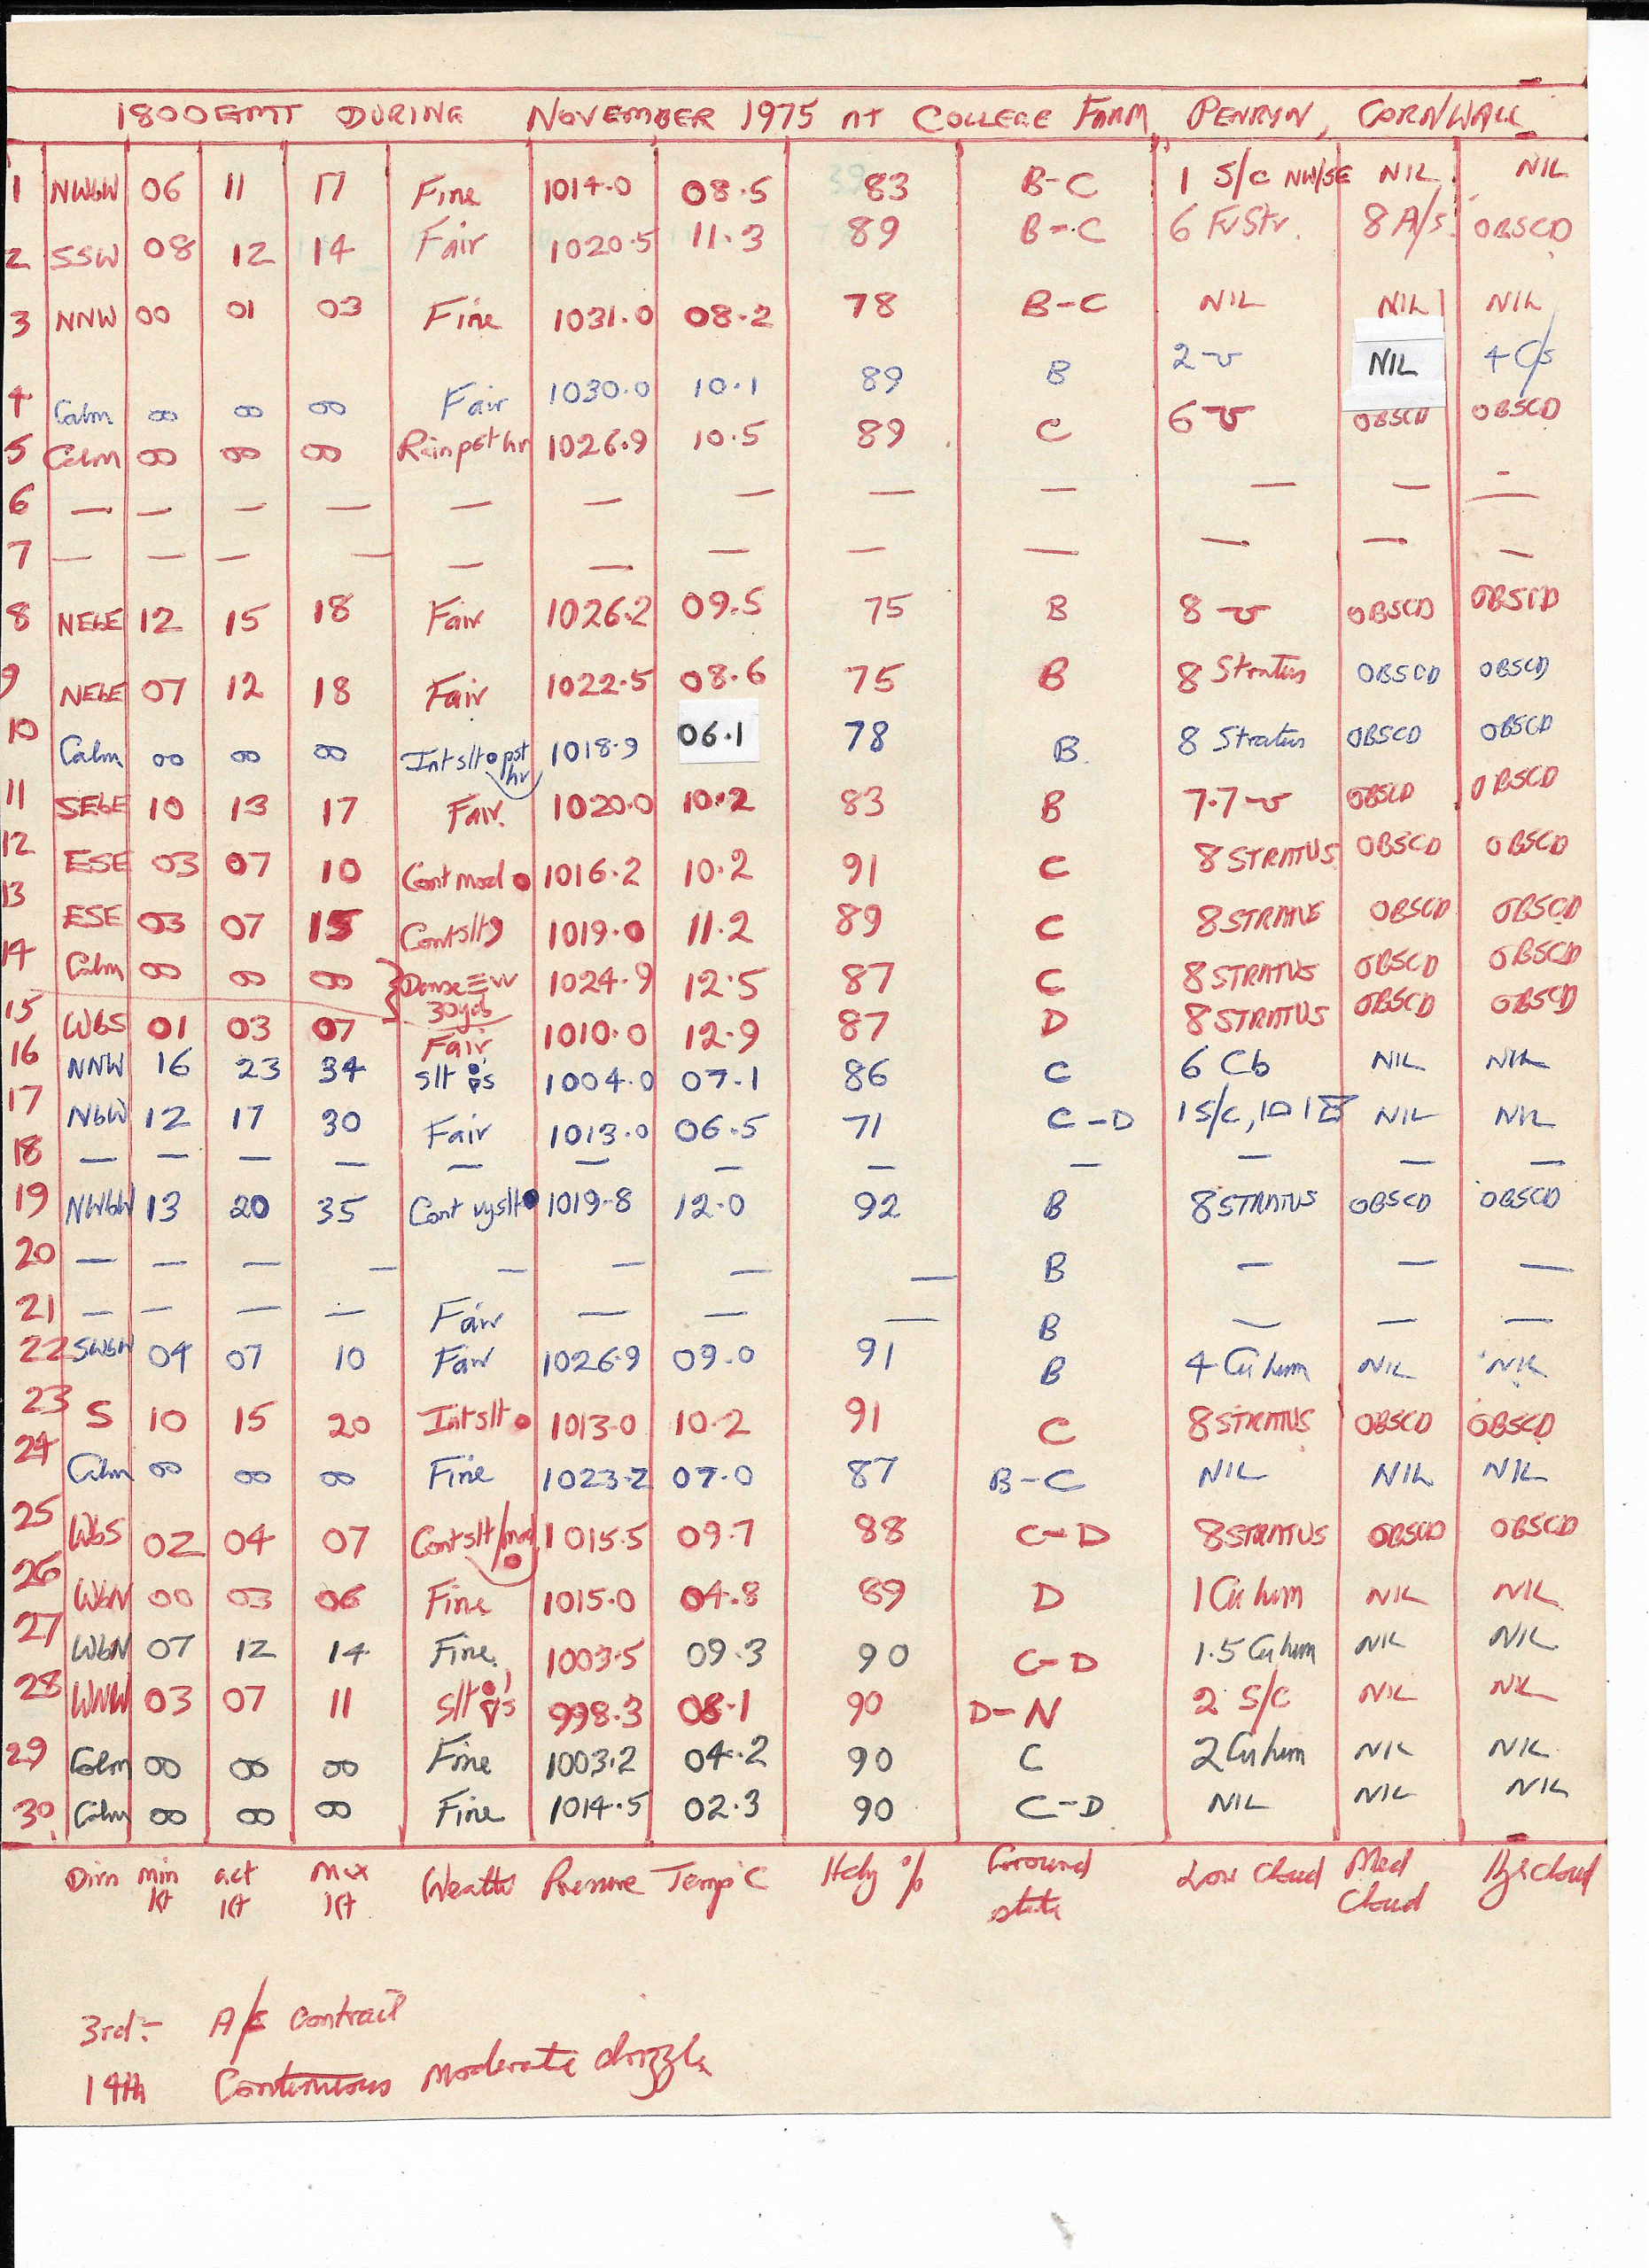 1800GMT DURING NOVEMBER 1975 AT COLLEGE FARM, PENRYN, CORNWALL
1 NWbW 06 11 17 Fine 1014.0 08.5 83 B-C 1 S/C NW/SE NIL NIL
2 SSW 08 12 14 Fair 1020.5 11.3 89 B-C 6 FrStr. 8 A/s OBSCD
3 NNW 00 01 03 Fine 1031.0 08.2 78 B-C NIL NIL NIL
4 Calm 00 00 00 Fair 1030.0 10.1 89 B 2 NIL 4 C/s
5 Calm 00 00 00 Rain pst hr 1026.9 10.5 89 C 6 OBSCD OBSCD
6 — — — — — — — — — — — —
7 — — — — — — — — — — — —
8 NEbE 12 15 18 Fair 1026.2 09.5 75 B 8 OBSCD OBSCD
9 NEbE 07 12 18 Fair 1022.5 08.6 75 B 8 Stratus OBSCD OBSCD
10 Calm 00 00 00 Int slt ● pst hr 1018.9 06.1 78 B 8 Stratus OBSCD OBSCD
11 SEbE 10 13 17 Fair. 1020.0 10.2 83 B 7.7 OBSCD OBSCD
12 ESE 03 07 10 Cont mod ● 1016.2 10.2 91 C 8 STRATUS OBSCD OBSCD
13 ESE 03 07 15 Cont slt 1019.0 11.2 89 C 8 STRATUS OBSCD OBSCD
14 Calm 00 00 00 Dense ≡ vv 30yds 1024.9 12.5 87 C 8 STRATUS OBSCD OBSCD
15 WbS 01 03 07 Fair 1010.0 12.9 87 D 8 STRATUS OBSCD OBSCD
16 NNW 16 23 34 slt 1004.0 07.1 86 C 6 Cb NIL NIL
17 NbW 12 17 30 Fair 1013.0 06.5 71 C-D 1 S/C, NIL NIL
18 — — — — — — — — — — — —
19 NWbW 13 20 35 Cont vy slt ● 1019.8 12.0 92 B 8 STRATUS OBSCD OBSCD
20 — — — — — — — — B — — —
21 — — — — Fair — — — B — — —
22 SWbW 04 07 10 Fair 1026.9 09.0 91 B 4 Cu hum NIL NIL
23 S 10 15 20 Int slt ● 1013.0 10.2 91 C 8 STRATUS OBSCD OBSCD
24 Calm 00 00 00 Fine 1023.2 07.0 87 B-C NIL NIL NIL
25 WbS 02 04 07 Cont slt/mod ● 1015.5 09.7 88 C-D 8 STRATUS OBSCD OBSCD
26 WbN 00 03 06 Fine 1015.0 04.8 89 D 1 Cu hum NIL NIL
27 WbN 07 12 14 Fine 1003.5 09.3 90 C-D 1.5 Cu hum NIL NIL
28 WNW 03 07 11 slt 998.3 08.1 90 D-N 2 S/C NIL NIL
29 Calm 00 00 00 Fine 1003.2 04.2 90 C 2 Cu hum NIL NIL
30 Calm 00 00 00 Fine 1014.5 02.3 90 C-D NIL NIL NIL
Dirn min Kt act Kt max Kt Weather Pressure Temp°C Hdy % Ground state Low Cloud Med Cloud High cloud
3rd:- A/C contrail
14th Continuous moderate drizzle